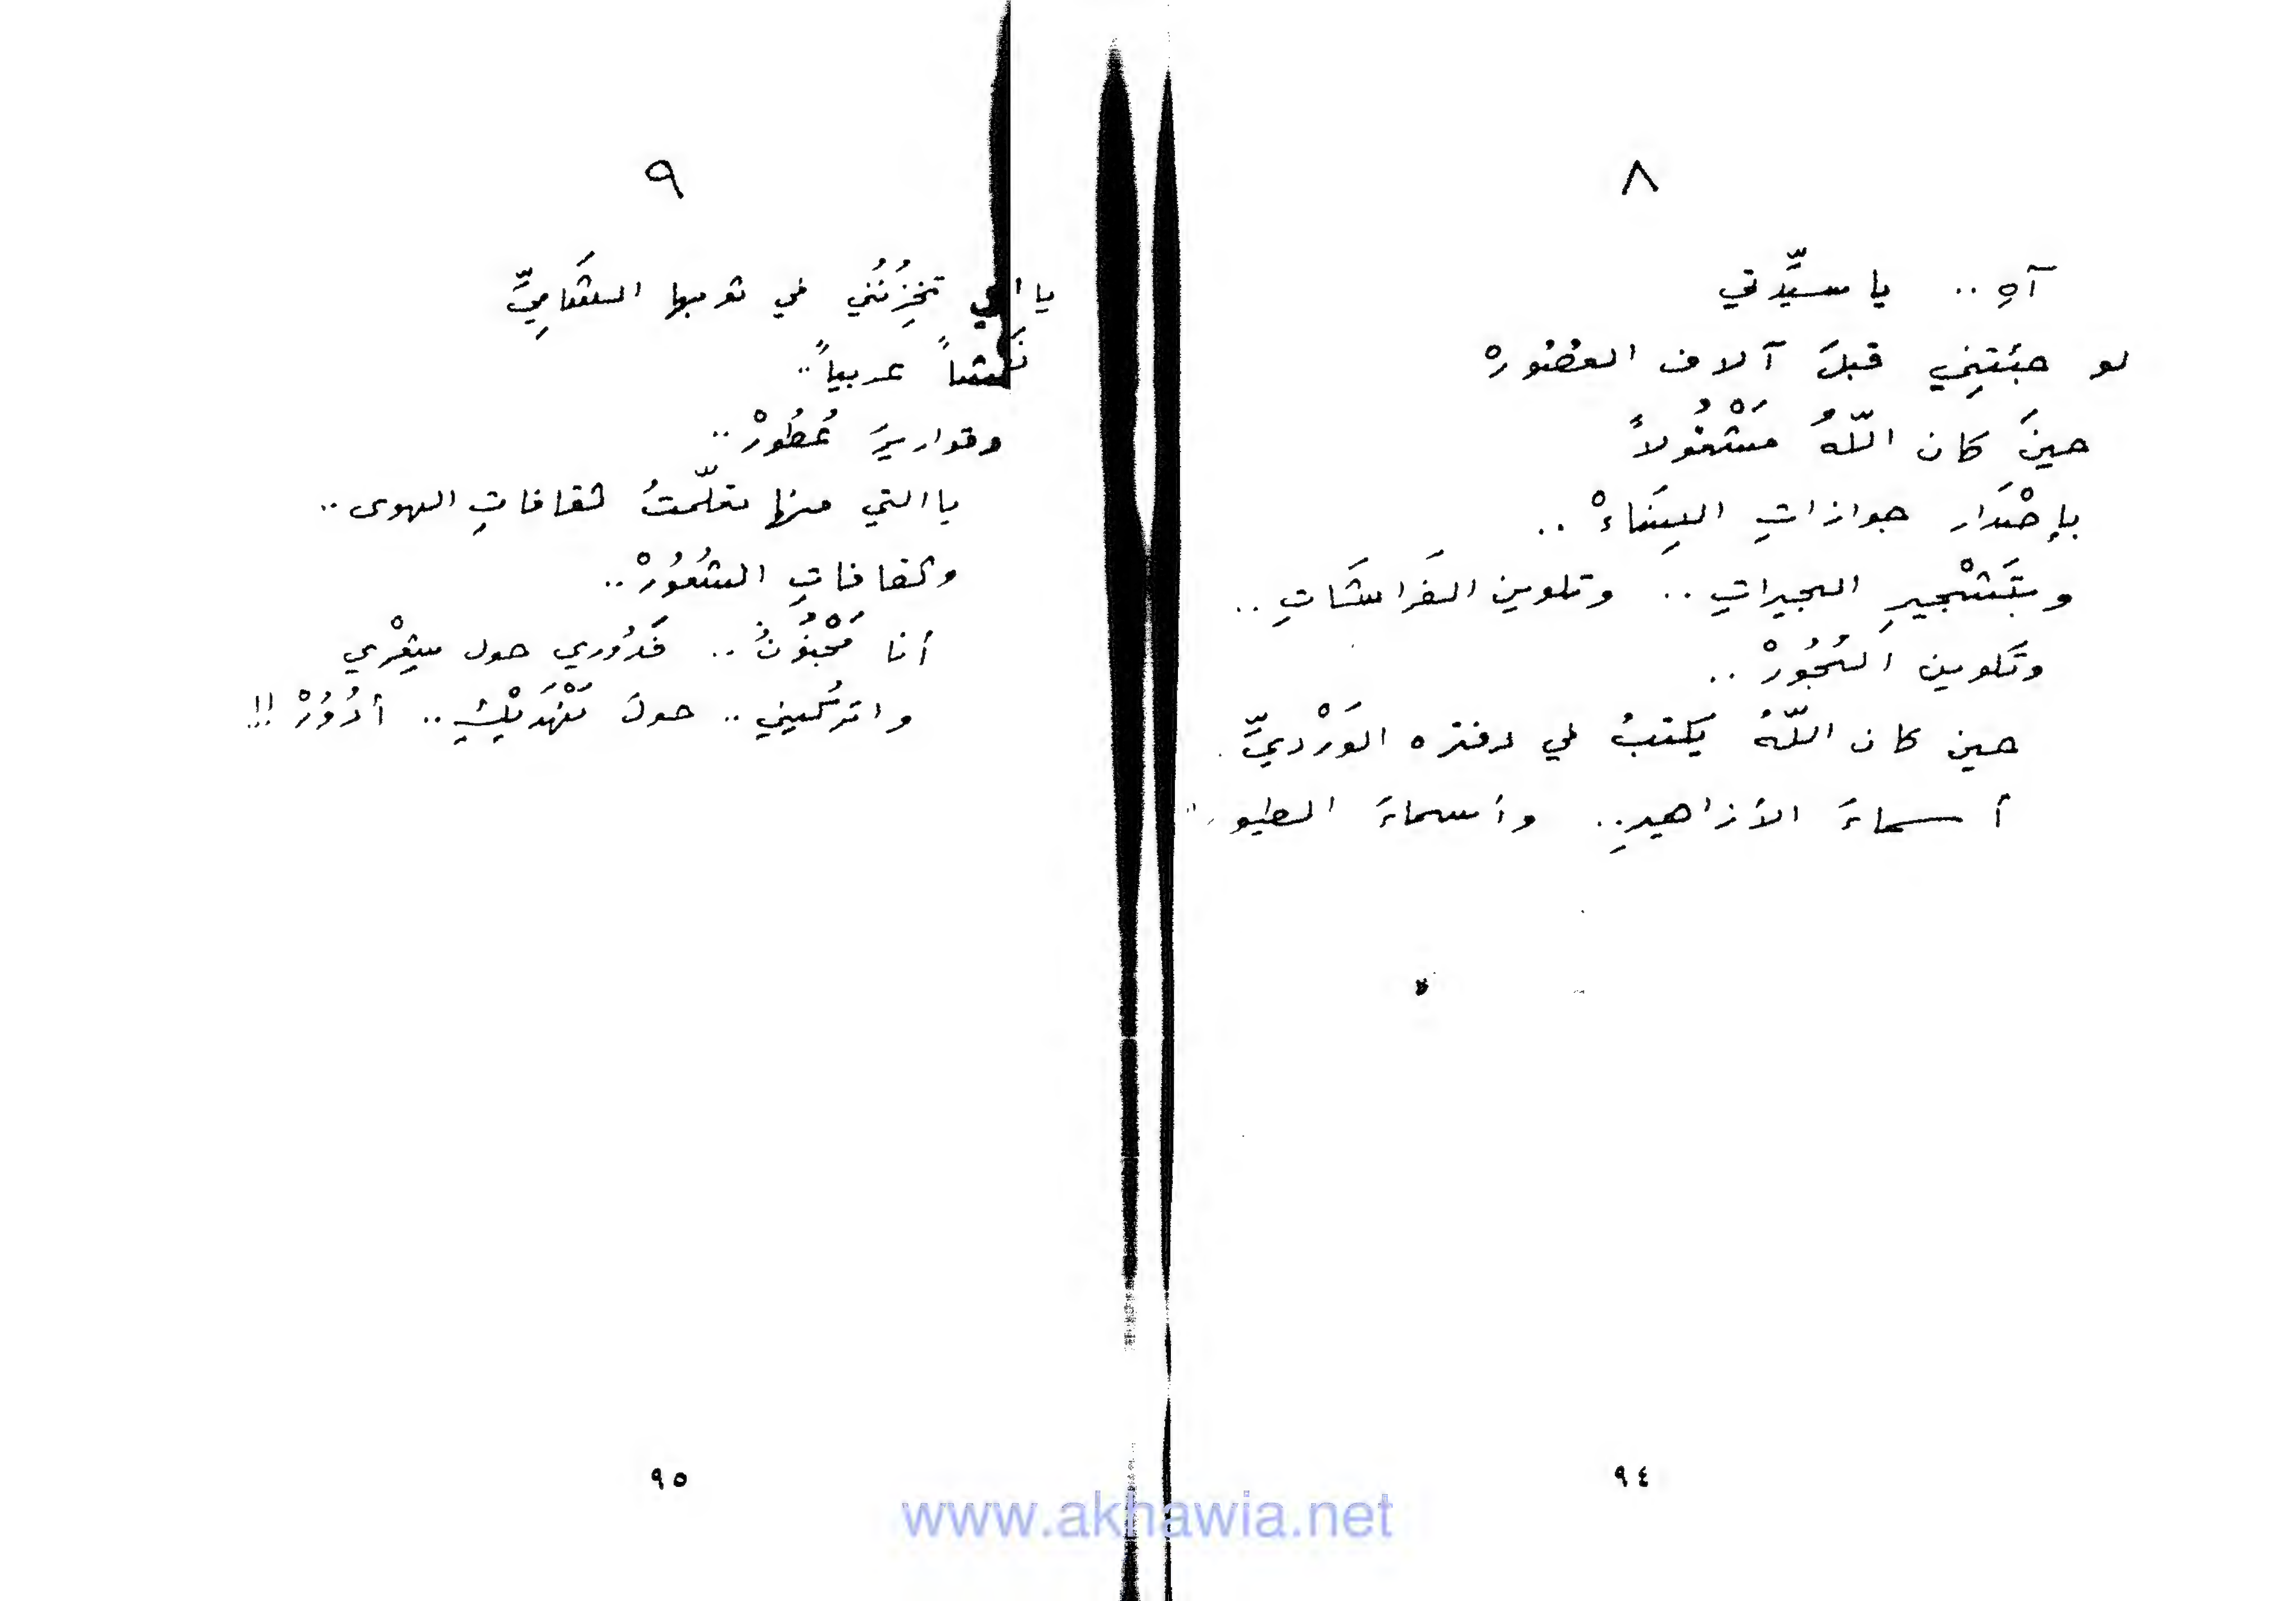 ٨
آهِ .. يا سيِّدتي
لو جئتِني قبلَ آلاف العُصُورْ
حينَ كان اللّهُ مَشْغُولاً
بإصْدَار جوازاتِ النِسَاءْ ..
وبتَشْجيرِ البحيراتِ .. وتلوين الفَراشَاتِ ..
وتَكوين البُحُورْ ..
حين كان اللّهُ يكتبُ في دفتره الوَرْديِّ
أسماءَ الأزاهيرِ .. وأسماءَ الطيور..
٩٤
٩
يا التي تخزِنُني في ثوبها الشَاميِّ
نَقشاً عربياً ..
وقواريرَ عُطُورْ ..
يا التي منها تعلّمتُ ثقافاتِ الهوى ..
وثقافاتِ الشُعُورْ ..
أنا مَجْنُونٌ .. فَدُوري حول شِعْري
واترُكيني .. حولَ نَهْدَيْكِ .. أدُوُرْ !!
٩٥
www.akhawia.net